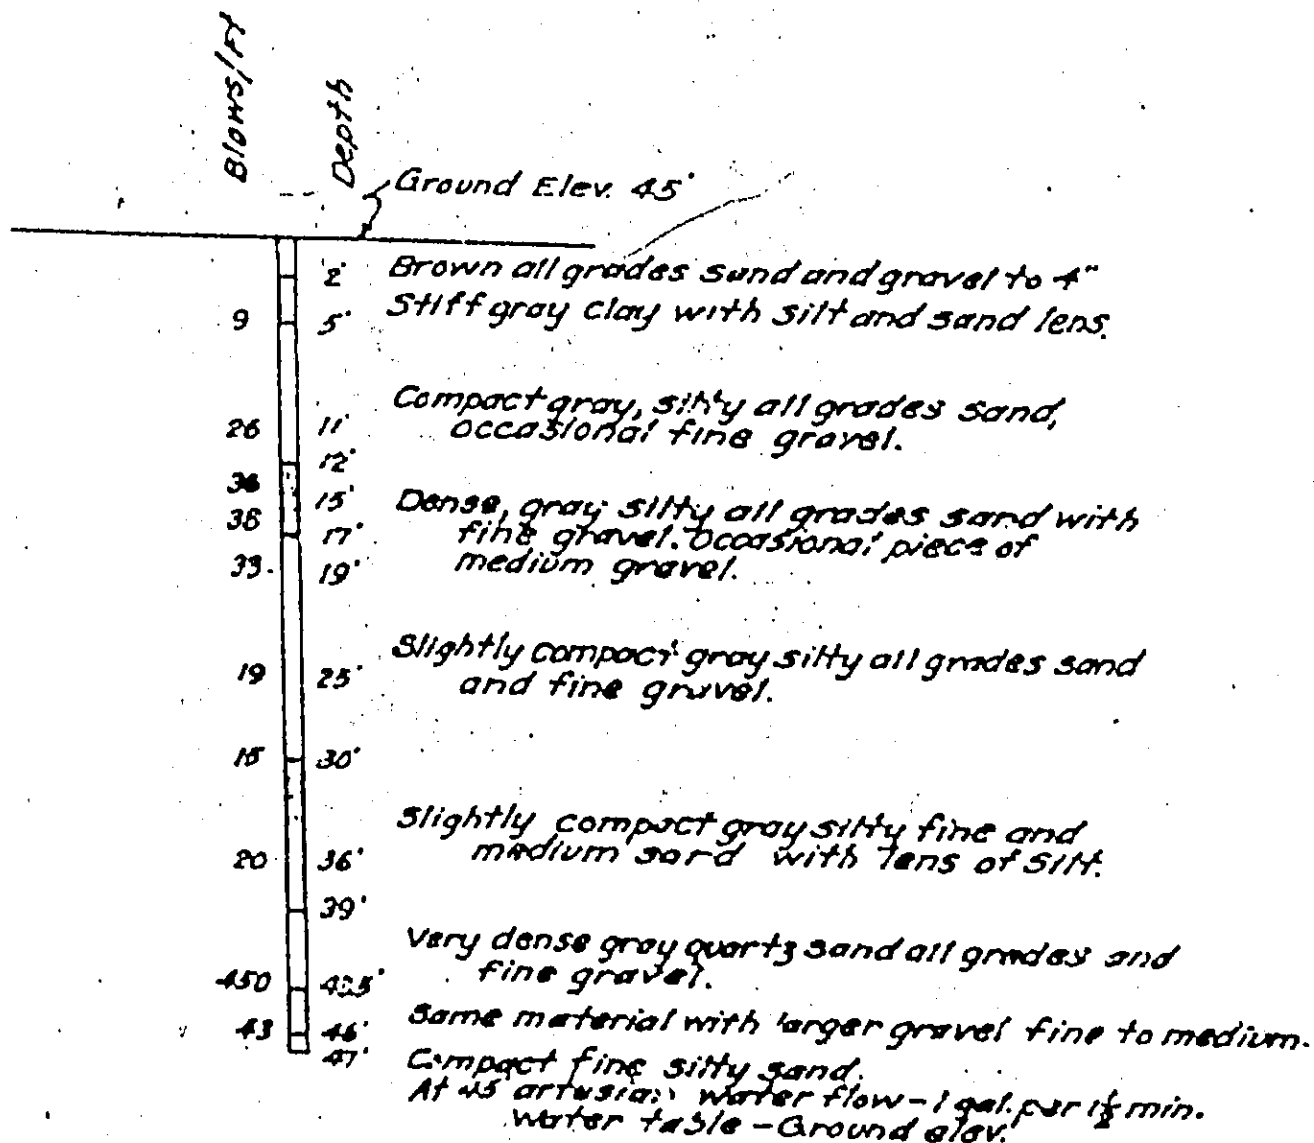 Blows/Ft
Depth
Ground Elev. 45'
2' Brown all grades sand and gravel to 4"
9 5' Stiff gray clay with silt and sand lens.
Compact gray, silty all grades sand,
26 11' occasional fine gravel.
12'
36
15' Dense, gray silty all grades sand with
38 17' fine gravel. Occasional piece of
33 19' medium gravel.
Slightly compact gray silty all grades sand
19 25' and fine gravel.
15 30'
Slightly compact gray silty fine and
20 36' medium sand with lens of silt.
39'
Very dense gray quartz sand all grades and
450 fine gravel.
43 46' Same material with larger gravel fine to medium.
47' Compact fine silty sand.
At 45' artesian water flow - 1 gal. per 1½ min.
Water table - Ground elev.